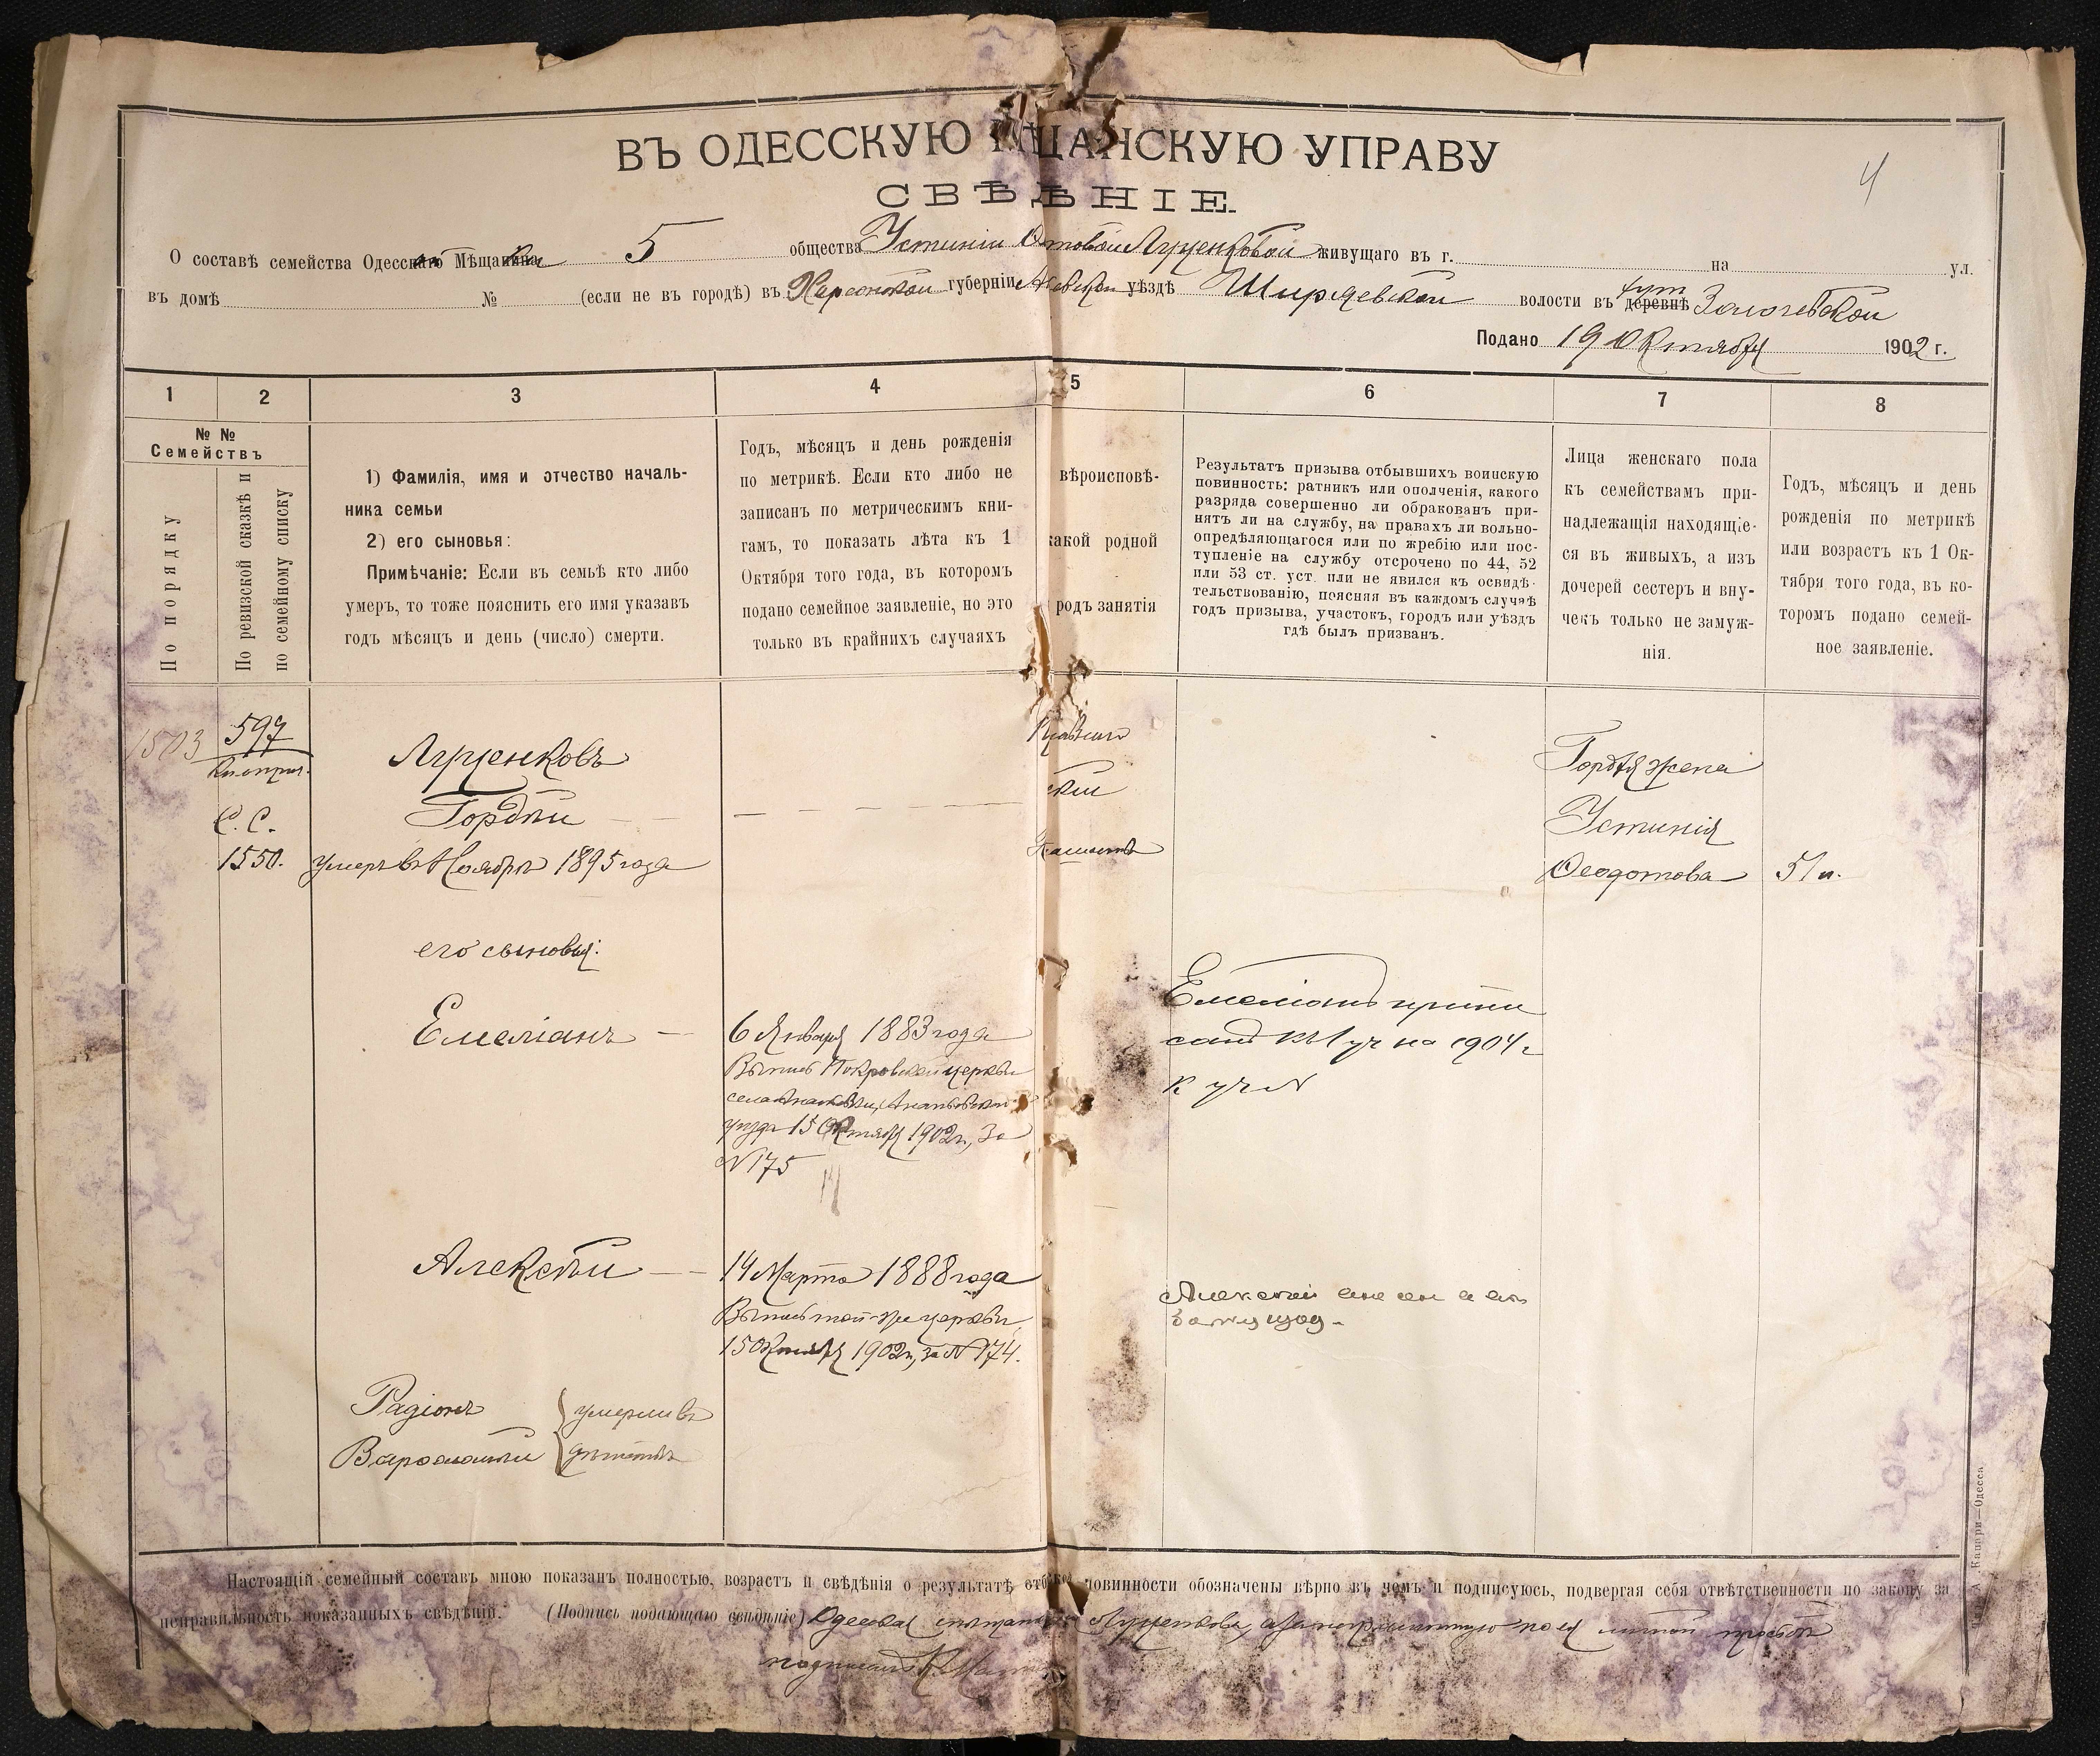 4
ВЪ ОДЕССКУЮ МѢЩАНСКУЮ УПРАВУ
СВѢДѢНІЕ.
О составѣ семейства Одесск Мѣщан 5 общества Устиніи живущаго въ г. на ул.
въ домѣ № (если не въ городѣ) въ Херсонской губерніи уѣздѣ Ширяевской волости въ хут деревнѣ
Подано 19 Октября 1902 г.
1 2 3 4 5 6 7 8
№ №
Семействъ
По порядку
По ревизской сказкѣ и
по семейному списку
1) Фамилія, имя и отчество началь-
ника семьи
2) его сыновья:
Примѣчаніе: Если въ семьѣ кто либо
умеръ, то тоже пояснить его имя указавъ
годъ мѣсяцъ и день (число) смерти.
Годъ, мѣсяцъ и день рожденія
по метрикѣ. Если кто либо не
записанъ по метрическимъ кни-
гамъ, то показать лѣта къ 1
Октября того года, въ которомъ
подано семейное заявленіе, но это
только въ крайнихъ случаяхъ
вѣроисповѣ-
какой родной
родъ занятія
Результатъ призыва отбывшихъ воинскую
повинность: ратникъ или ополченія, какого
разряда совершенно ли обракованъ при-
нятъ ли на службу, на правахъ ли вольно-
опредѣляющагося или по жребію или пос-
тупленіе на службу отсрочено по 44, 52
или 53 ст. уст. или не явился къ освидѣ-
тельствованію, поясняя въ каждомъ случаѣ
годъ призыва, участокъ, городъ или уѣздъ
гдѣ былъ призванъ.
Лица женскаго пола
къ семействамъ при-
надлежащія находящіе-
ся въ живыхъ, а изъ
дочерей сестеръ и вну-
чекъ только не замуж-
нія.
Годъ, мѣсяцъ и день
рожденія по метрикѣ
или возрастъ къ 1 Ок-
тября того года, въ ко-
торомъ подано семей-
ное заявленіе.
1503
597
С. С.
1550.
Гордѣй
умеръ въ Ноябрѣ 1895 года
Гордѣя жена
Устинія
Феодотова 51 л.
его сыновья:
Емеліанъ
6 Января 1883 года
Выпись Покровской церкви
села Ананьевскаго
уѣзда 15 Октября 1902 г., за
№ 175
Емеліанъ припи
санъ къ 1 уч на 1904 г
к уч №
Алексѣй
14 Марта 1888 года
Выпись той-же церкви,
15 Октября 1902 г., за № 174.
Алексѣй
Радіонъ
умерли въ
дѣтствѣ
Настоящій семейный составъ мною показанъ полностью, возрастъ и свѣдѣнія о результатѣ повинности обозначены вѣрно въ чемъ и подписуюсь, подвергая себя отвѣтственности по закону за
неправильность показанныхъ свѣдѣній. (Подпись подающаго свѣдѣніе) Одесская мѣщанка а за неграмотную по ея личной просьбѣ
подписалъ
Одесса